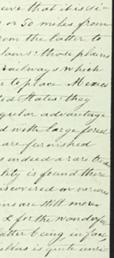 that it is si-
or 50 miles from
from the latter to
plains: those plains
railways which
to place Mexico
ted States: they
gular advantage
d with large forest
are furnished
indeed a rare tred
lity is found there
iscovered in various
ns are still more
& for the wonderful
latter being in fact
is quite unin